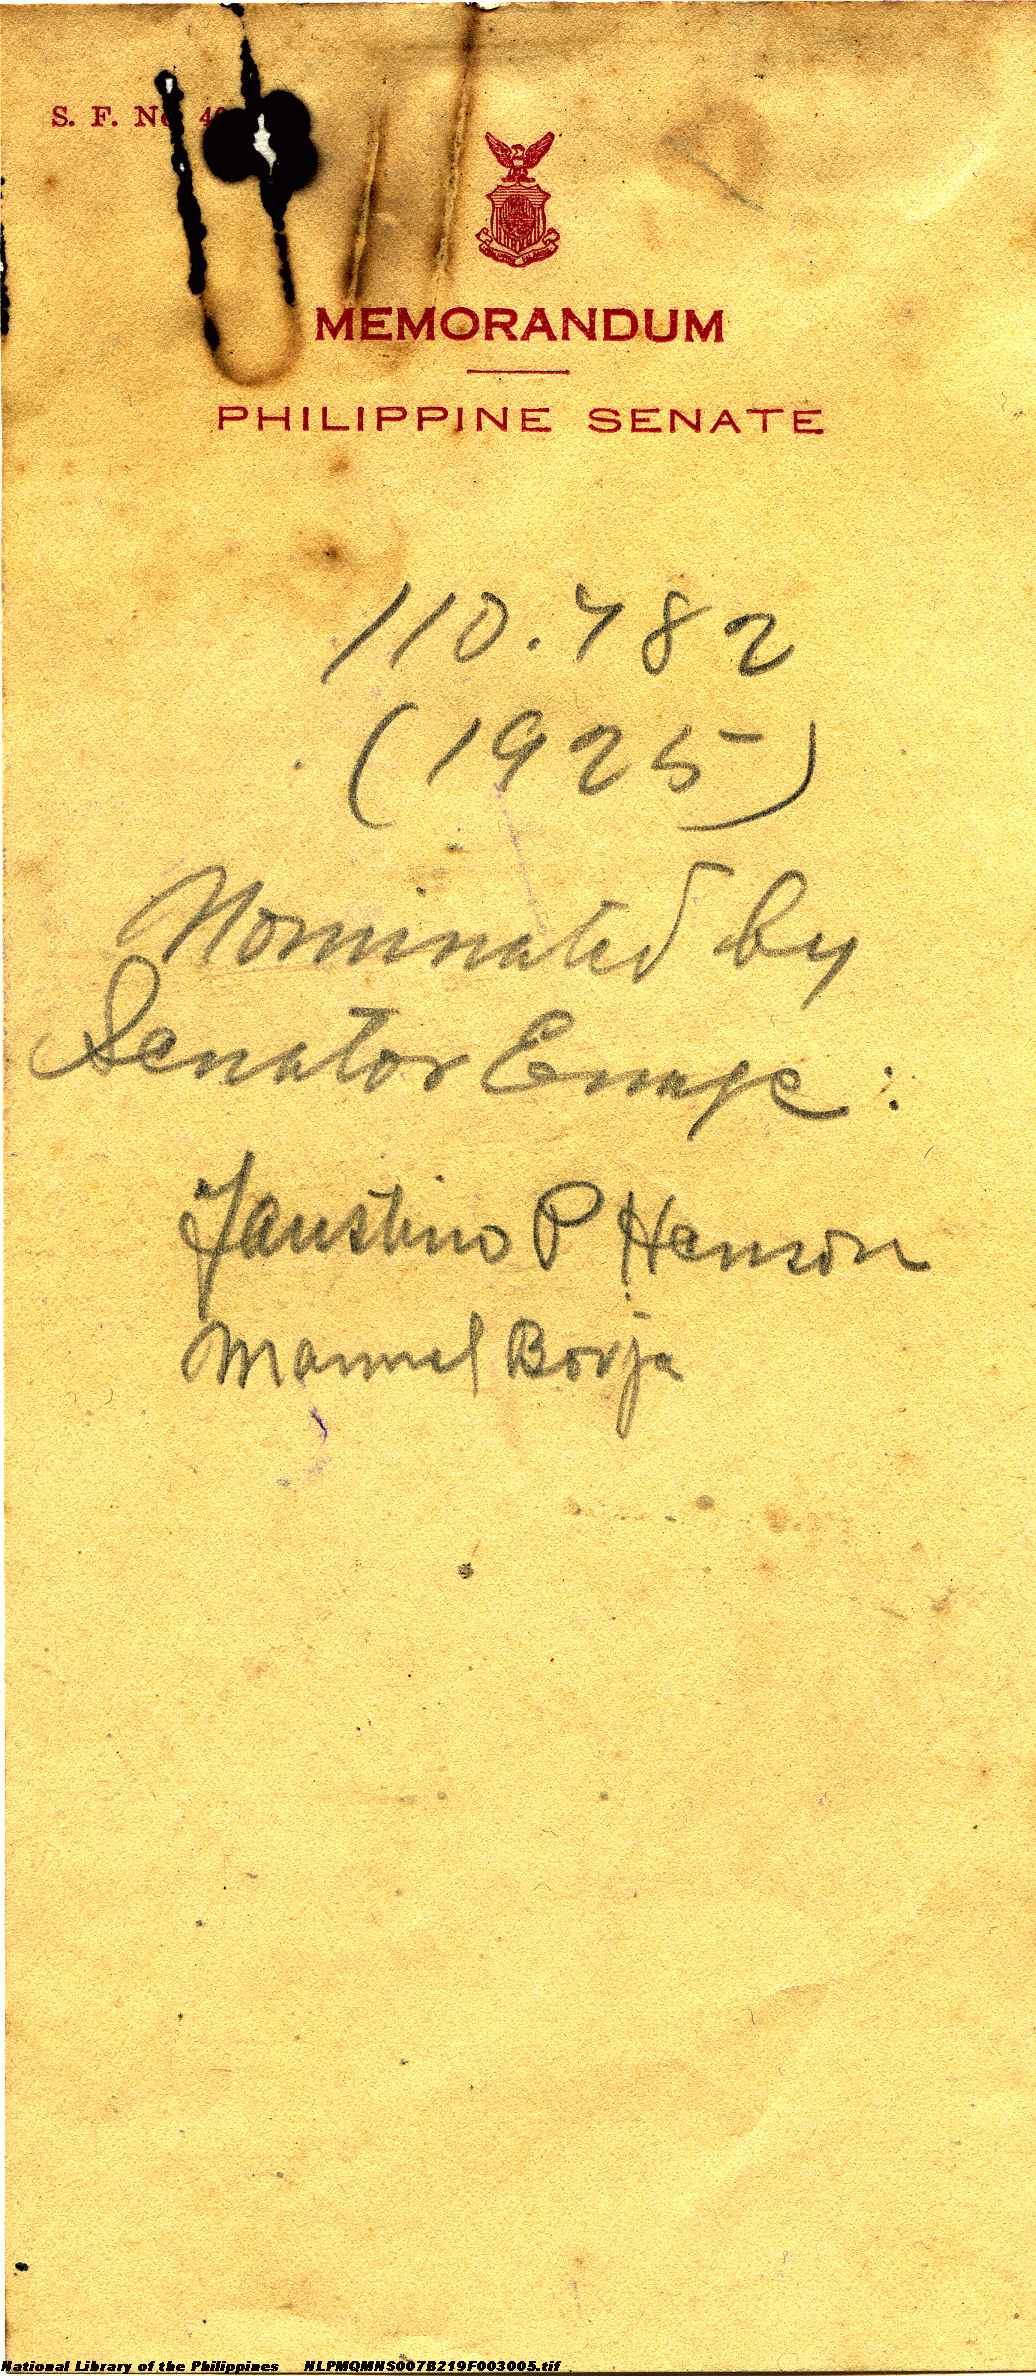 S. F. No. 40
MEMORANDUM
PHILIPPINE SENATE
110.782
(1925)
Nominated by
Senator Enage :
Faustino P Henson
Manuel Borja
National Library of the Philippines NLPMQMNS007B219F003005.tif